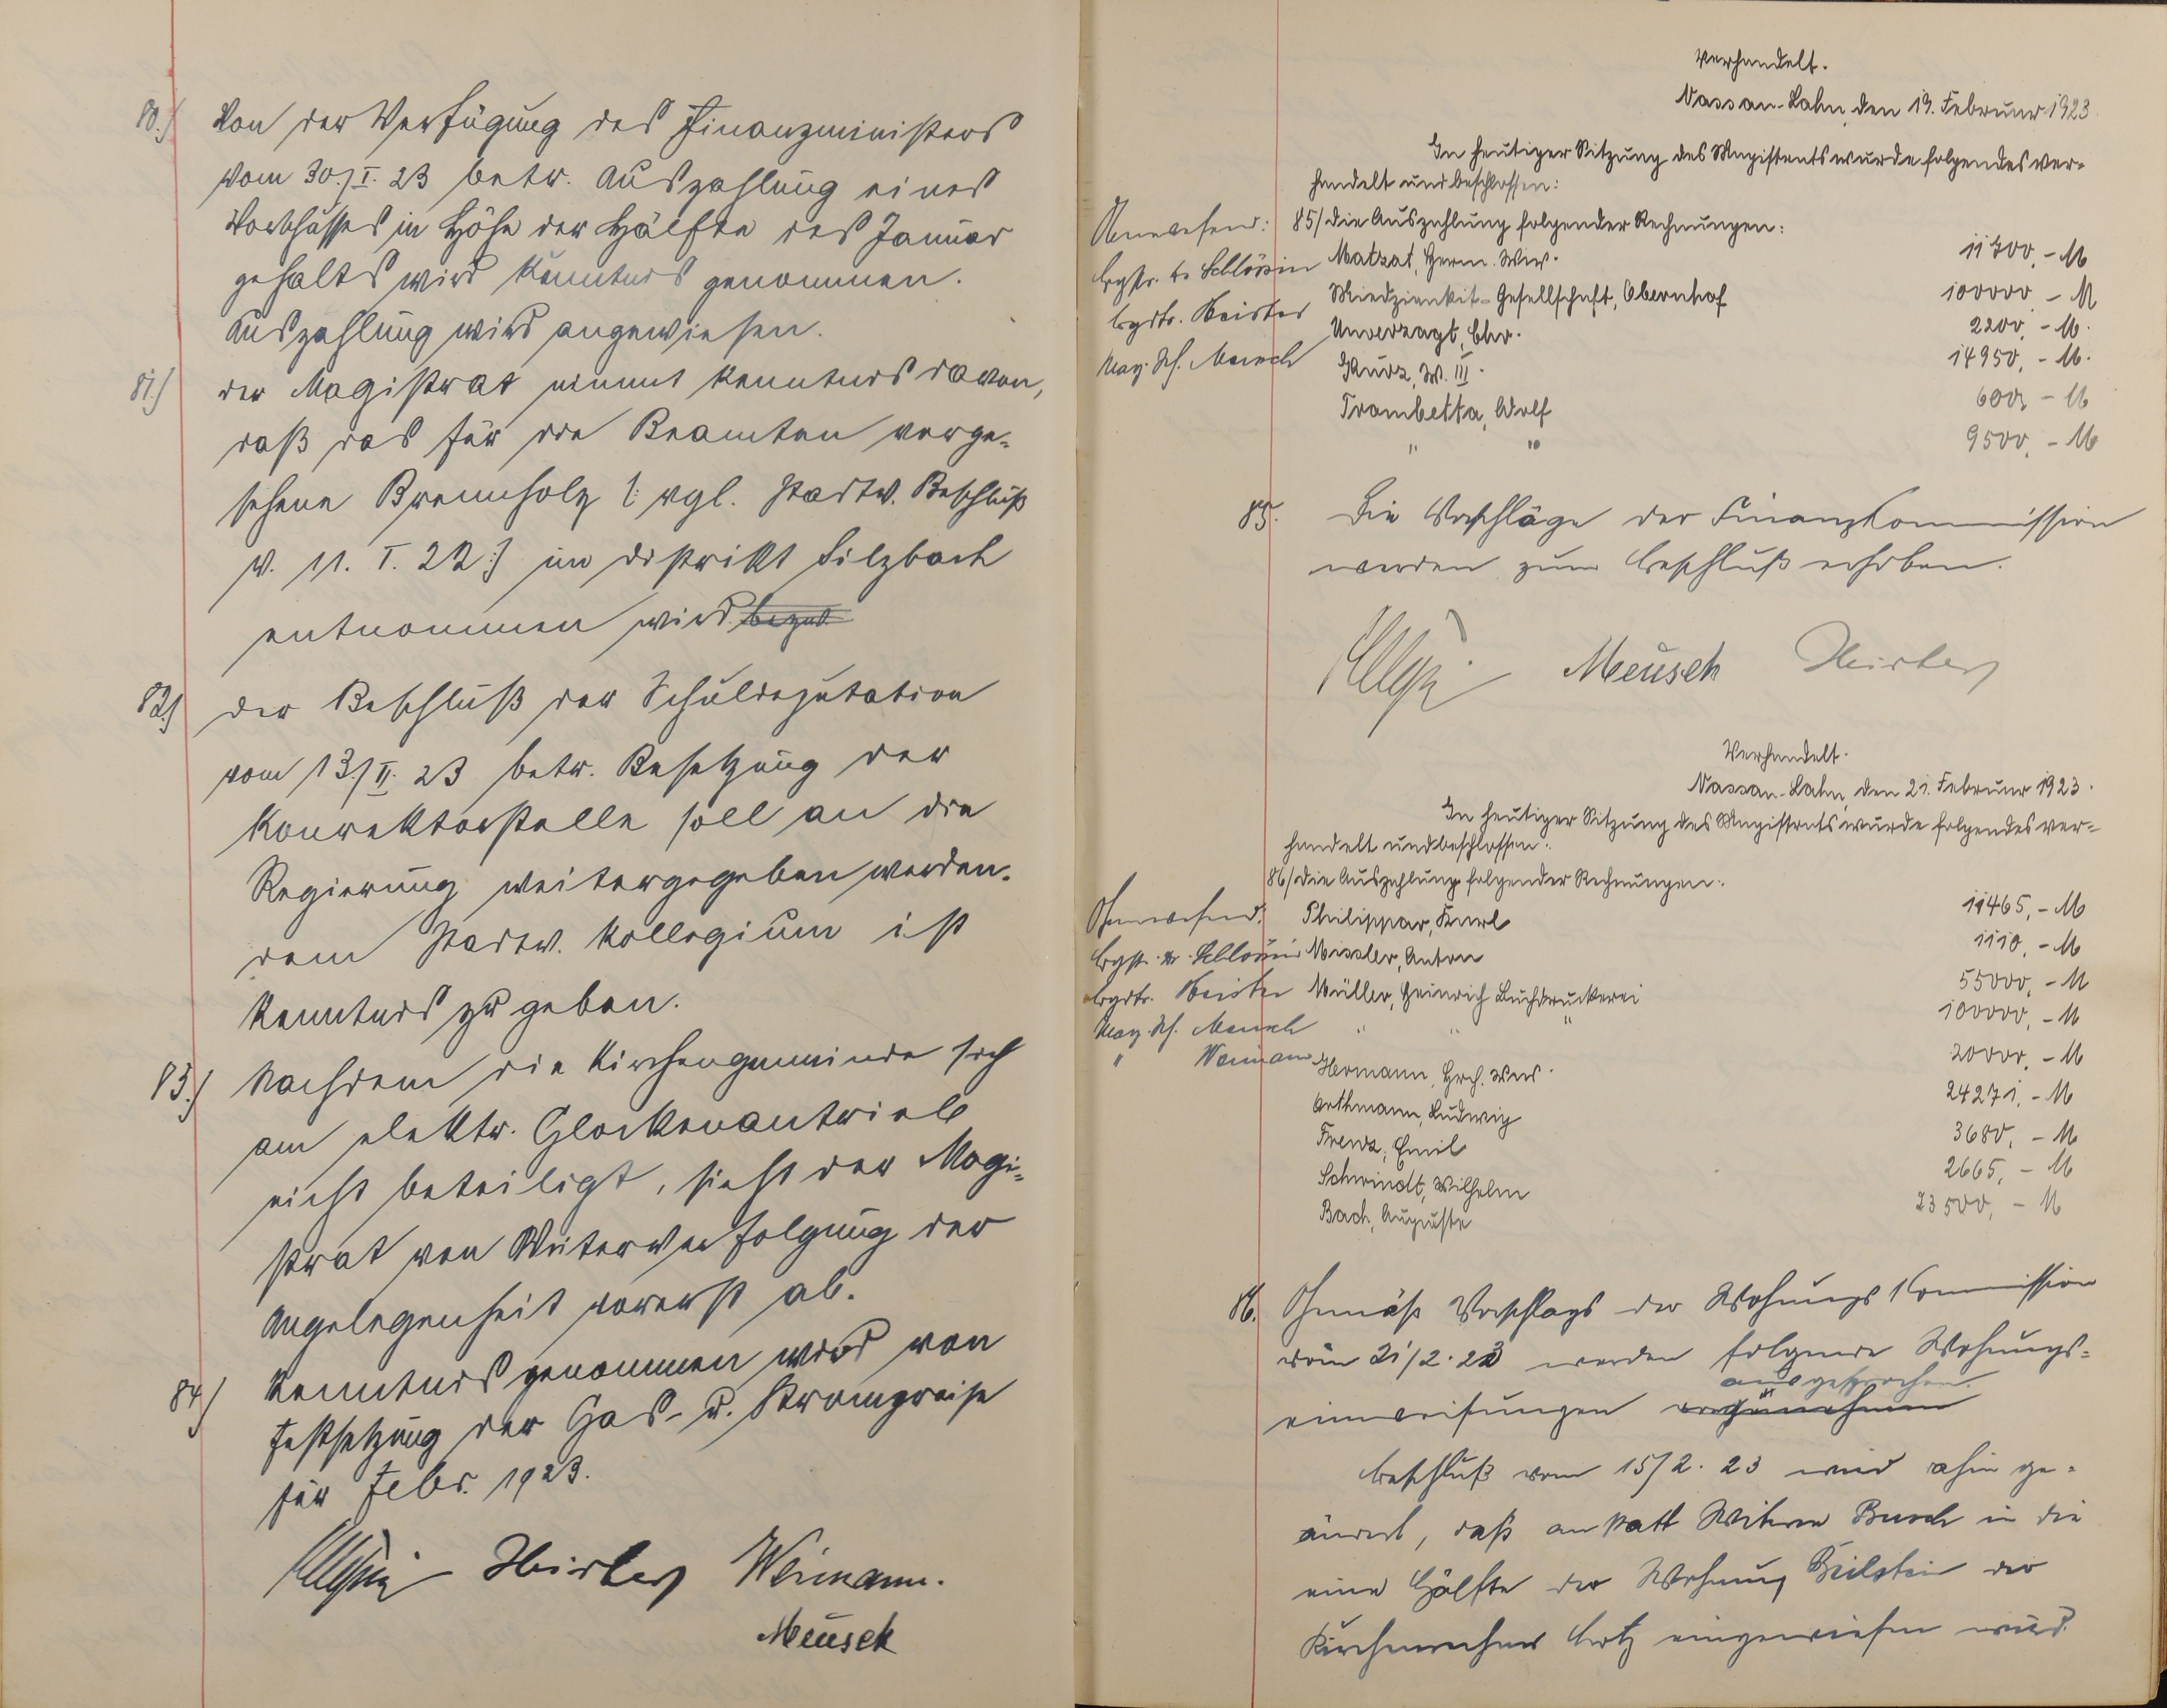 80.) Von der Verfügung des Finanzministers
vom 30./I. 23 betr. Auszahlung eines
Vorschusses in Höhe der Hälfte des Januar
gehalts wird Kenntnis genommen.
Auszahlung wird angewiesen.
81.) der Magistrat nimmt Kenntnis davon,
daß das für die Beamten vorge-
sehene Brennholz (: vgl. Stadtv. Beschluß
v. 11. I. 22:) im Distrikt Filzbach
entnommen wird
82.) der Beschluß der Schuldeputation
vom 13./II. 23 betr. Besetzung der
Konrektorstelle soll an die
Regierung weitergegeben werden.
dem Stadtv. Kollegium ist
Kenntnis zu geben.
83.) Nachdem die Kirchengemeinde sich
am elektr. Glockenantrieb
nicht beteiligt, sieht der Magi-
strat von Weiterverfolgung der
Angelegenheit vorerst ab.
84.) Kenntnis genommen wird von
Festsetzung der Gas- u. Strompreise
für Febr. 1923.
Weimann.
Meusch
Verhandelt.
Nassau-Lahn, den 19. Februar 1923
In heutiger Sitzung des Magistrats wurde folgendes ver-
handelt und beschlossen:
Anwesend: 85/ die Auszahlung folgender Rechnungen:
Matzat, Herm. Wwe. 11700,- M
Gesellschaft, Obernhof 100000 - M
Unverzagt, Chr. 2200,- M.
Mag. Sch. Meusch Kurz, W. III. 14950,- M.
Trombetta, Adolf 600, - M
" " 9500, - M
85. Die Vorschläge der Finanzkommission
werden zum Beschluß erhoben.
Meusch
Verhandelt.
Nassau-Lahn, den 21. Februar 1923.
In heutiger Sitzung des Magistrats wurde folgendes ver-
handelt und beschlossen:
86/ die Auszahlung folgender Rechnungen:
Anwesend: Philippar, Karl 11465,- M
Missler, Anton 1110,- M
Müller, Heinrich Buchdruckerei 55000, - M
Mag. Sch. Meusch " " " 100000, - M
" Weimann Hermann, Hrch. Wwe. 20000, - M
Arthmann, Ludwig 24271, - M
Frenz, Emil 3680, - M
Schwindt, Wilhelm 2665, - M
Bach, Auguste 23500, - M
86. Gemäß Vorschlags der Wohnungskommission
vom 21/2. 23 werden folgende Wohnungs-
ausgesprochen.
einweisungen
Beschluß vom 15/2. 23 wird dahin ge-
ändert, daß anstatt Witwe Busch in die
eine Hälfte der Wohnung Beilstein der
Kirchenrechner eingewiesen wird.